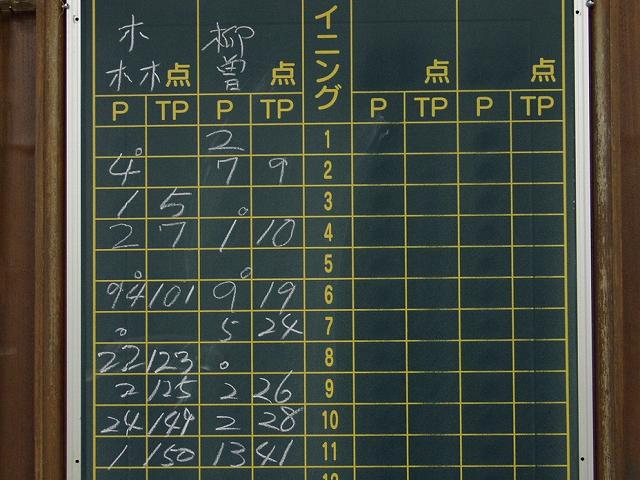 木 柳 イニング
林 点 曽 点 点 点
P TP P TP P TP P TP
。 2 1
4 7 9 2
1 5 。 3
2 7 1 10 4
。 。 5
94 101 9 19 6
。 5 24 7
22 123 。 8
2 125 2 26 9
24 149 2 28 10
1 150 13 41 11